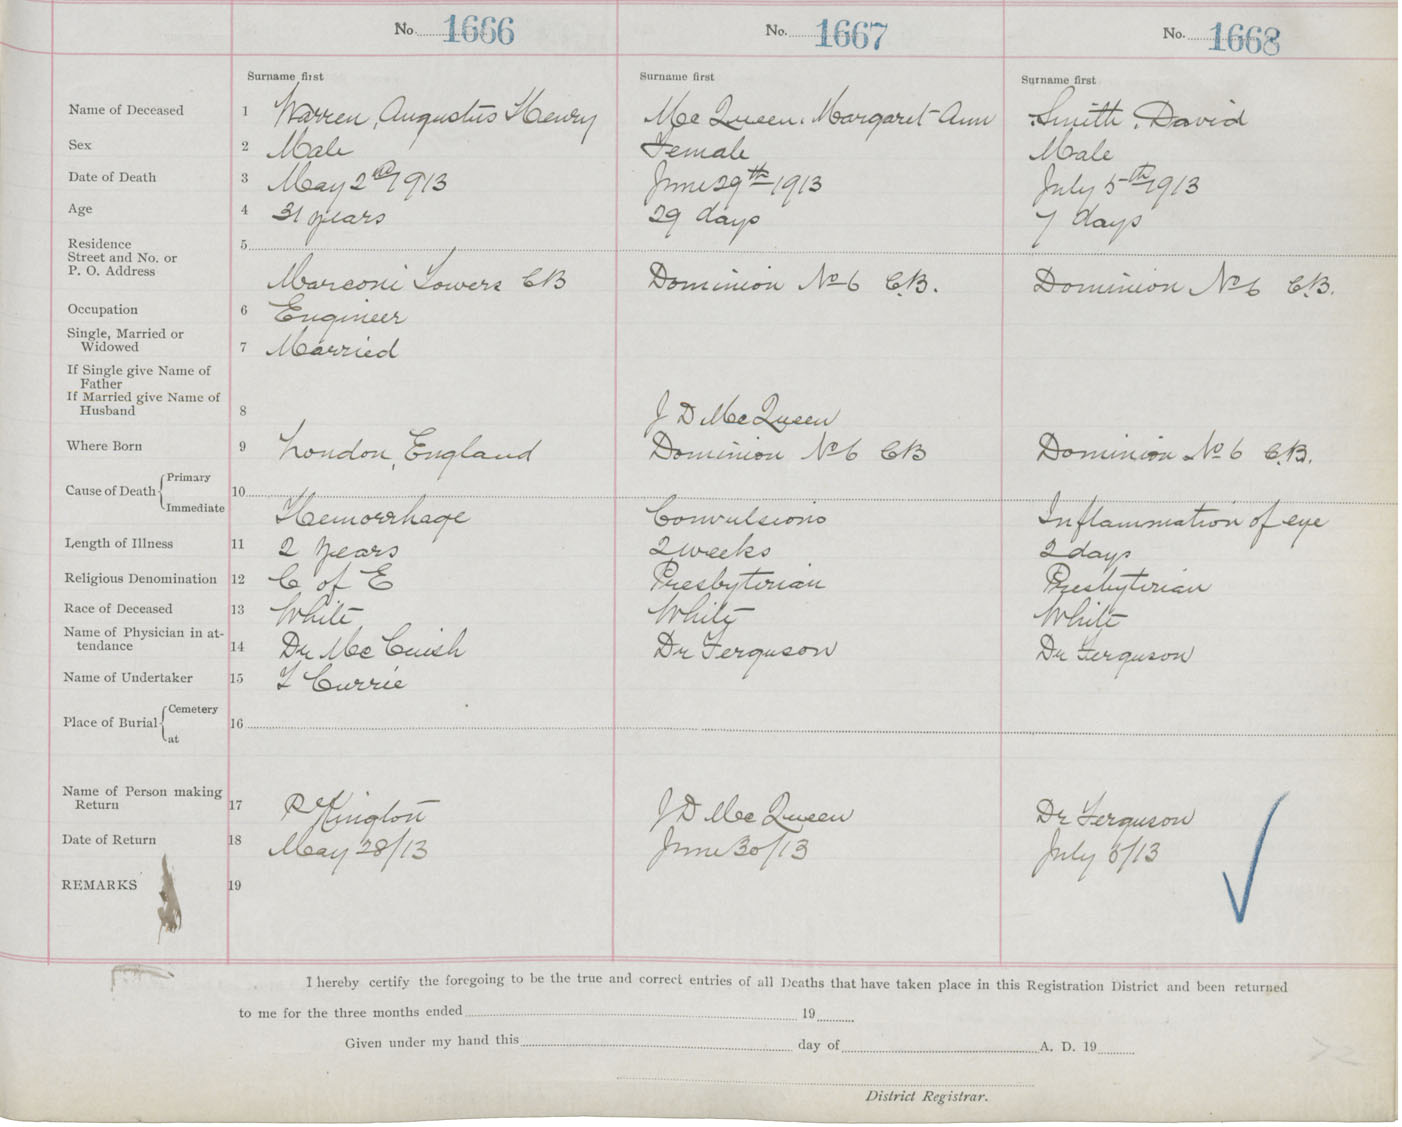 No. 1666 No. 1667 No. 1668
Surname first Surname first Surname first
Name of Deceased 1 Warren, Augustus Henry Mc Queen, Margaret Ann Smith, David
Sex 2 Male Female Male
Date of Death 3 May 2nd 1913 June 29th 1913 July 5th 1913
Age 4 31 years 29 days 7 days
Residence 5
Street and No. or
P. O. Address
Marconi Towers CB Dominion No 6 C.B. Dominion No 6 C.B.
Occupation 6 Engineer
Single, Married or
Widowed 7 Married
If Single give Name of
Father
If Married give Name of
Husband 8 J D McQueen
Where Born 9 London, England Dominion No 6 CB Dominion No 6 C.B.
Cause of Death { Primary
10
Immediate Hemorrhage Convulsions Inflammation of eye
Length of Illness 11 2 years 2 weeks 2 days
Religious Denomination 12 C of E Presbyterian Presbyterian
Race of Deceased 13 White White White
Name of Physician in at-
tendance 14 Dr McCuish Dr Ferguson Dr Ferguson
Name of Undertaker 15 F Currie
Place of Burial { Cemetery
16
at
Name of Person making
Return 17 Kington J D McQueen Dr Ferguson
Date of Return 18 May 28/13 June 30/13 July 5/13
REMARKS 19
I hereby certify the foregoing to be the true and correct entries of all Deaths that have taken place in this Registration District and been returned
to me for the three months ended 19
Given under my hand this day of A. D. 19
District Registrar.